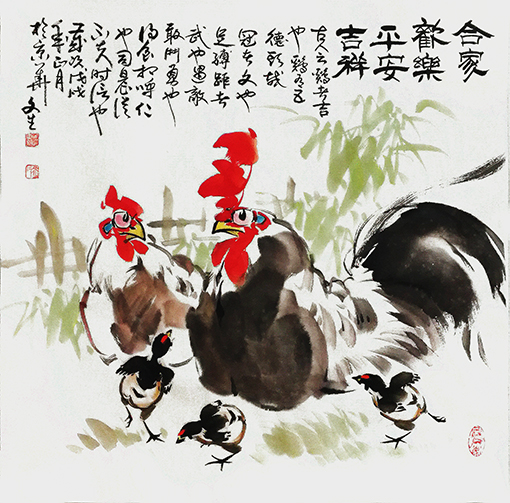 合家
歡樂
平安
吉祥
古人云鷄者吉
也鷄有五
德頭戴
冠者文也
足縛距者
武也遇敵
敢鬥勇也
得食相呼仁
也司晨從
不失時信也
歲次戊戌
年正月
於京華文生